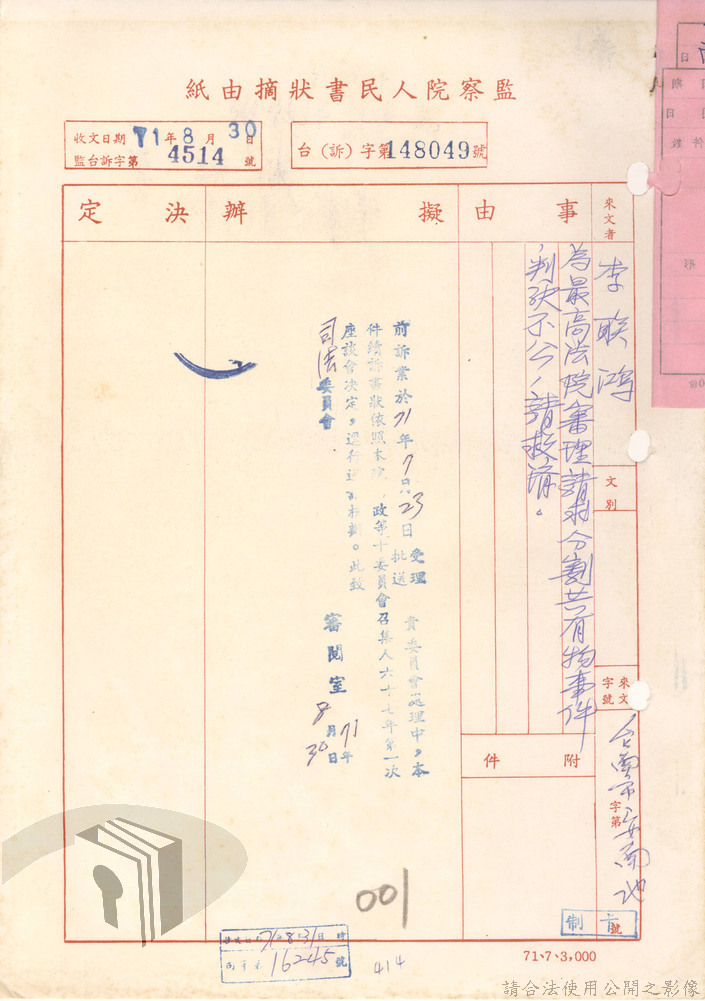 監察院人民書狀摘由紙
收文日期 71年8月30日
監台訴字第 4514 號
台（訴）字第148049號
來文者
李聯鴻
文別
來文字號
字第
號
台南市安南地
事由
為最高法院審理請求分割共有物事件
判決不公，請救濟。
附件
擬辦
前訴業於71年7月23日受理批送 貴委員會處理中，本
件續訴書狀依照本院 政等十委員會召集人六十七年第一次
座談會決定，逕行送 核辦。此致
司法委員會
審閱室
71年
8月
30日
決定
001
71 8 31
16245 號
414
71、7、3,000
請合法使用公開之影像